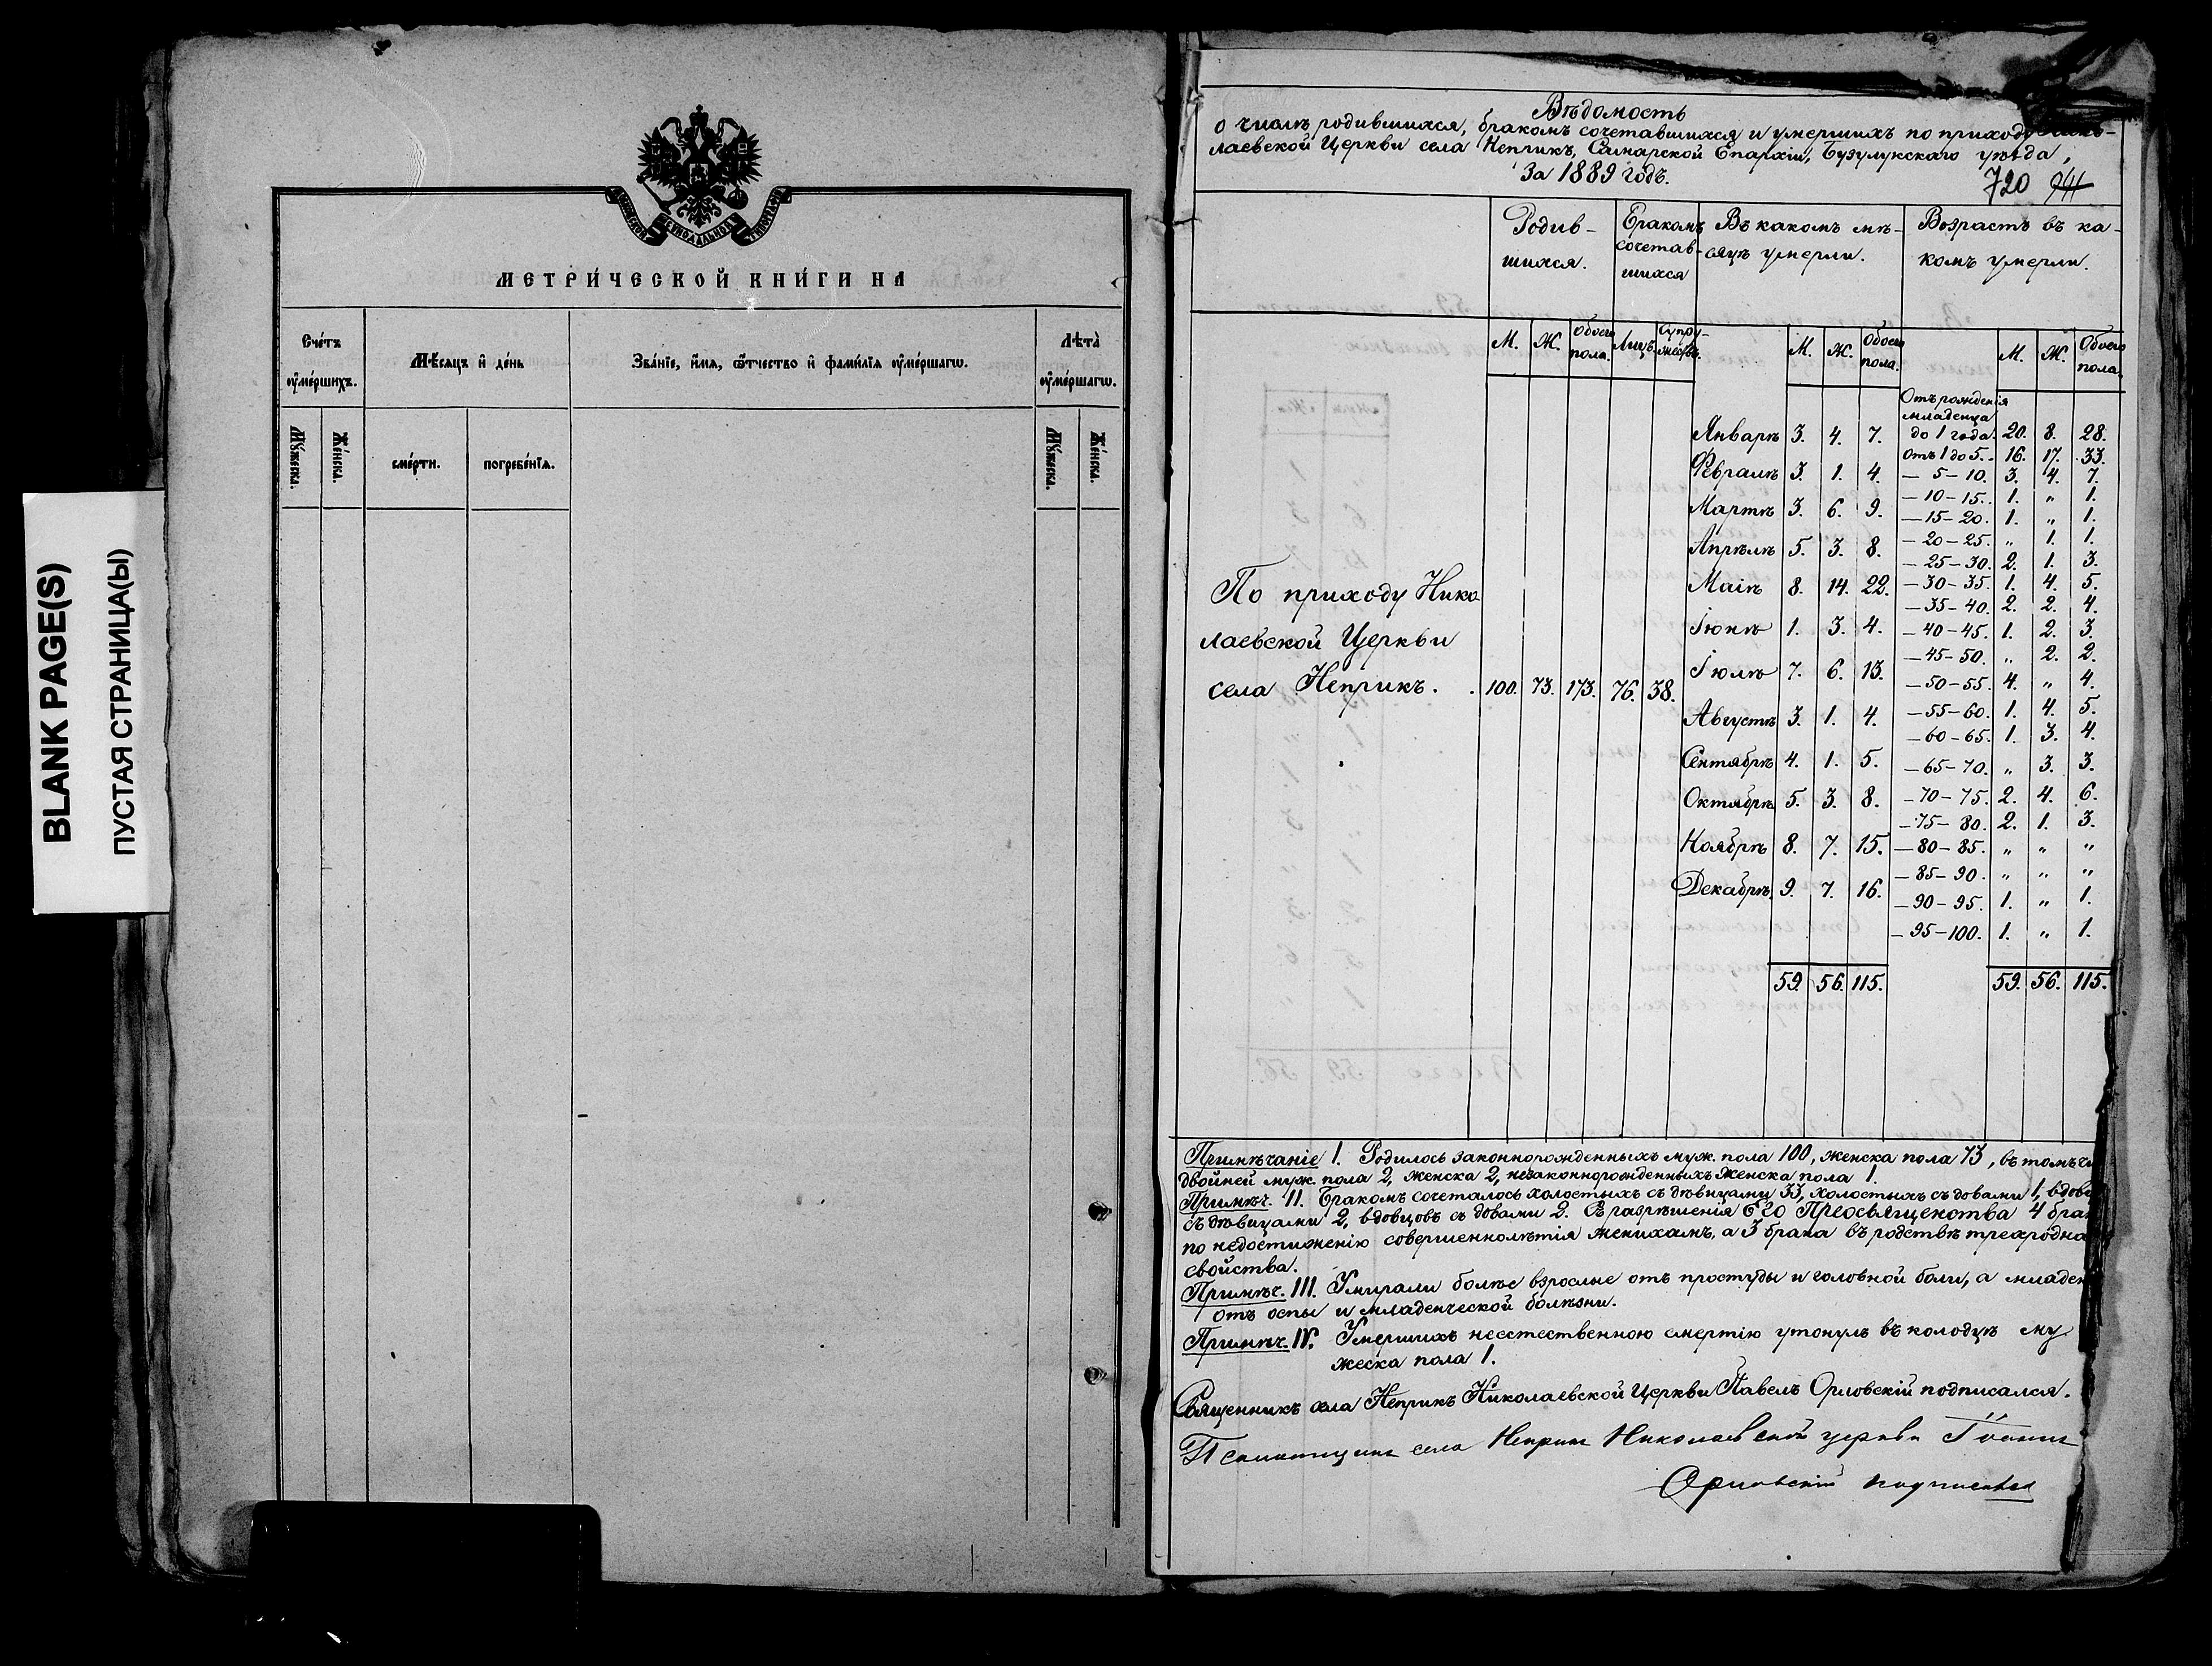 BLANK PAGE(S)
ПУСТАЯ СТРАНИЦА(Ы)
МЕТРИ́ЧЕСКОЙ КНИ́ГИ НА
Сче́тъ оу҆ме́ршихъ.
Мѣ́сяцъ и҆ де́нь
Зва́нїе, и҆́мѧ, ѻ҆́тчество и҆ фами́лїѧ оу҆ме́ршагѡ.
Лѣта̀ оу҆ме́ршагѡ.
Мꙋ́жеска.
Же́нска.
сме́рти.
погребе́нїѧ.
Мꙋ́жеска.
Же́нска.
Вѣдомость
о числѣ родившихся, бракомъ сочетавшихся и умершихъ по приходу
лаевской Церкви села Неприкъ, Самарской Епархіи, Бузулукскаго уѣзда,
За 1889 годъ.
720
Родив-шихся.
Бракомъ сочетав-шихся
Въ какомъ мѣ-сяцѣ умерли.
Возрастъ въ ка-комъ умерли.
М. Ж. Обоего пола. Лицъ. Супру-жествъ. М. Ж. Обоего пола. М. Ж. Обоего пола.
По приходу Нико
лаевской Церкви
села Неприкъ. . 100. 73. 173. 76. 38.
Январѣ 3. 4. 7.
Февралѣ 3. 1. 4.
Мартѣ 3. 6. 9.
Апрѣлѣ 5. 3. 8.
Маіѣ 8. 14. 22.
Іюнѣ 1. 3. 4.
Іюлѣ 7. 6. 13.
Августѣ 3. 1. 4.
Сентябрѣ 4. 1. 5.
Октябрѣ 5. 3. 8.
Ноябрѣ 8. 7. 15.
Декабрѣ. 9. 7. 16.
59. 56. 115.
Отъ рожденія
младенца
до 1 года. 20. 8. 28.
Отъ 1 до 5. . 16. 17. 33.
— 5 – 10. 3. 4. 7.
— 10 – 15. . 1. „ 1.
— 15 – 20. 1. „ 1.
— 20 – 25. „ 1. 1.
— 25 – 30. 2. 1. 3.
— 30 – 35. 1. 4. 5.
— 35 – 40. 2. 2. 4.
— 40 – 45. 1. 2. 3.
— 45 – 50. „ 2. 2.
— 50 – 55. 4. „ 4.
— 55 – 60. 1. 4. 5.
— 60 – 65. 1. 3. 4.
— 65 – 70. „ 3. 3.
— 70 – 75. 2. 4. 6.
— 75 – 80. 2. 1. 3.
— 80 – 85. „ „ „
— 85 – 90. „ „ „
— 90 – 95. 1. „ 1.
— 95 – 100. 1. „ 1.
59. 56. 115.
Примѣчаніе 1. Родилось законнорожденныхъ муж. пола 100, женска пола 73, въ томъ
двойней муж. пола 2, женска 2, незаконнорожденныхъ женска пола 1.
Примѣч. II. Бракомъ сочеталось холостыхъ съ дѣвицами 33, холостыхъ съ довами 1,
съ дѣвицами 2, вдовцовъ съ довами 2. Съ разрѣшенія Его Преосвященства 4
по недостиженію совершеннолѣтія женихамъ, а 3 брака въ родствѣ
свойства.
Примѣч. III. Умирали болѣе взрослые отъ простуды и головной боли, а
отъ оспы и младенческой болѣзни.
Примѣч. IV. Умершихъ неестественною смертію утонулъ въ колодцѣ му
жеска пола 1.
Священникъ села Неприкъ Николаевской Церкви Павелъ Орловскій подписался.
Псаломщикъ села Неприкъ Николаевской церкви Іоаннъ
Орловскій подписался